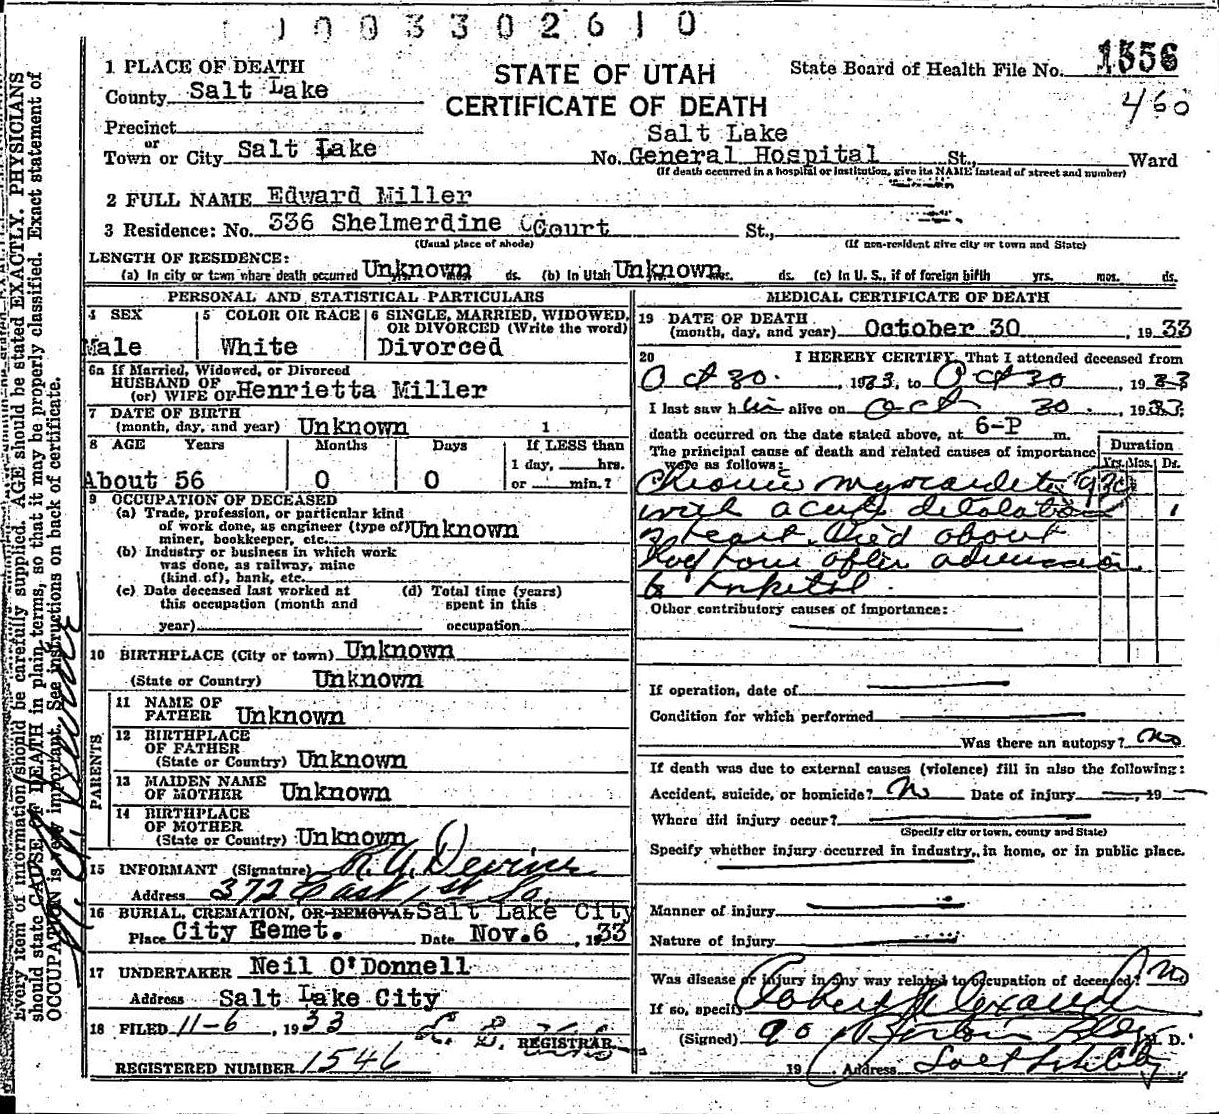 1003302610
1 PLACE OF DEATH
STATE OF UTAH
CERTIFICATE OF DEATH
State Board of Health File No. 1556
460
County Salt Lake
Precinct
or
Town or City Salt Lake
Salt Lake
No. General Hospital St., Ward
(If death occurred in a hospital or institution, give its NAME instead of street and number)
2 FULL NAME Edward Miller
3 Residence: No. 336 Shelmerdine Court St.,
(Usual place of abode) (If non-resident give city or town and State)
LENGTH OF RESIDENCE:
(a) In city or town where death occurred Unknown ds. (b) In Utah Unknown mos. ds. (c) In U. S., if of foreign birth yrs. mos. ds.
PERSONAL AND STATISTICAL PARTICULARS
4 SEX
Male
5 COLOR OR RACE
White
6 SINGLE, MARRIED, WIDOWED, OR DIVORCED (Write the word)
Divorced
6a If Married, Widowed, or Divorced
HUSBAND OF
(or) WIFE OF Henrietta Miller
7 DATE OF BIRTH
(month, day, and year) Unknown 1
8 AGE Years Months Days If LESS than
1 day, hrs.
About 56 0 0 or min.?
9 OCCUPATION OF DECEASED
(a) Trade, profession, or particular kind
of work done, as engineer (type of) Unknown
miner, bookkeeper, etc.
(b) Industry or business in which work
was done, as railway, mine
(kind of), bank, etc.
(c) Date deceased last worked at
this occupation (month and
year)
(d) Total time (years)
spent in this
occupation
10 BIRTHPLACE (City or town) Unknown
(State or Country) Unknown
PARENTS
11 NAME OF
FATHER Unknown
12 BIRTHPLACE
OF FATHER
(State or Country) Unknown
13 MAIDEN NAME
OF MOTHER Unknown
14 BIRTHPLACE
OF MOTHER
(State or Country) Unknown
15 INFORMANT (Signature) Devine
Address 372 East 1st So.
16 BURIAL, CREMATION, OR REMOVAL Salt Lake City
Place City Cemet. Date Nov. 6, 1933
17 UNDERTAKER Neil O'Donnell
Address Salt Lake City
18 FILED 11-6, 1933
REGISTRAR
REGISTERED NUMBER 1546
MEDICAL CERTIFICATE OF DEATH
19 DATE OF DEATH
(month, day, and year) October 30, 1933
20 I HEREBY CERTIFY, That I attended deceased from
Oct 30, 1933, to Oct 30, 1933
I last saw him alive on Oct 30, 1933;
death occurred on the date stated above, at 6-P m.
The principal cause of death and related causes of importance
were as follows:
Duration
Yrs. Mos. Ds.
Chronic myocarditis 93c
with acute dilatation 1
of heart. Died about
half hour after admission
to hospital.
Other contributory causes of importance:
If operation, date of
Condition for which performed
Was there an autopsy? No
If death was due to external causes (violence) fill in also the following:
Accident, suicide, or homicide? No Date of injury , 19
Where did injury occur?
(Specify city or town, county and State)
Specify whether injury occurred in industry, in home, or in public place.
Manner of injury
Nature of injury
Was disease or injury in any way related to occupation of deceased? No
If so, specify
(Signed) Robert Alexander M. D.
19 Address Salt Lake City
Every item of information should be carefully supplied. AGE should be stated EXACTLY. PHYSICIANS
should state CAUSE OF DEATH in plain terms, so that it may be properly classified. Exact statement of
OCCUPATION is very important. See instructions on back of certificate.